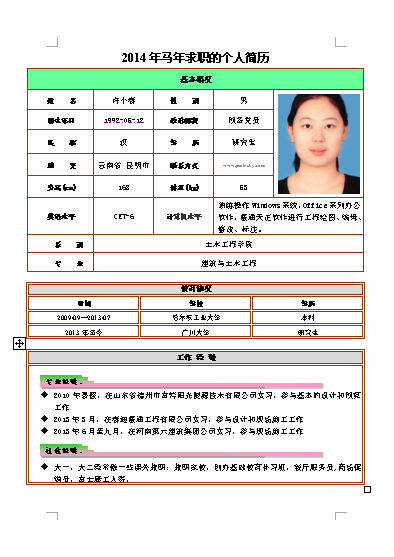 2014 年马年求职的个人简历
基本概况
姓 名 许小春 性 别 男
出生年月 1992-06-12 政治面貌 预备党员
民 族 汉 学 历 研究生
籍 贯 云南省 昆明市 联系方式
身高(cm) 168 体重(kg) 65
英语水平 CET-6 计算机水平
熟练操作 Windows 系统,Office 系列办公
软件,
修改、标注。
系 别 土木工程学院
专 业 建筑与土木工程
教育概况
时间 学校 学历
2009-09—2013-07 哈尔滨工业大学 本科
2013 年至今 广州大学 研究生
工作 经 验
专业经验:
2010 年暑假,在山东省德州市 能源技术有限公司实习,参与基本的设计和现场
工作
工程有限公司实习,参与设计和现场施工工作
年 6 月至九月,在河南第六建筑集团公司实习,参与现场施工工作
社会经验:
大一、大二经常做一些课外兼职:兼职家教,创办基础教育补习班,餐厅服务员,商场促
销员,富士康工人等。